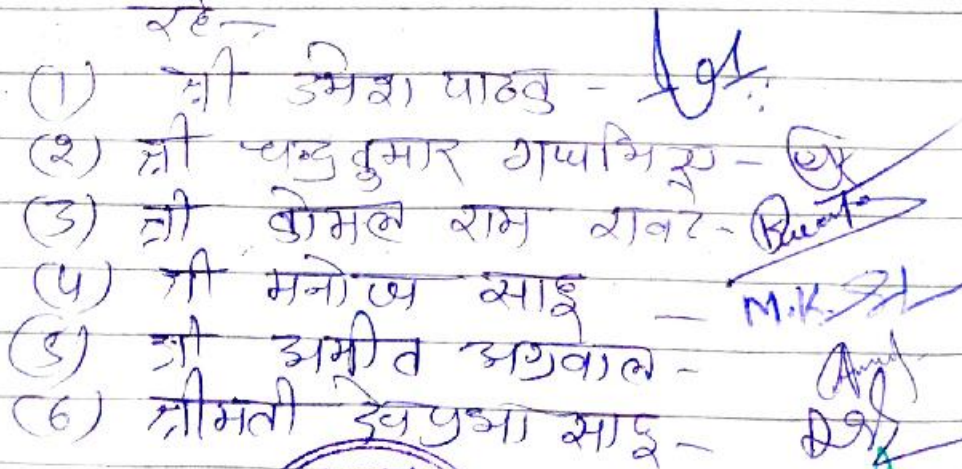 रहे—
(1) श्री उमेश पाठक -
(२) श्री चन्द्रकुमार -
(3) श्री कोमल राम रावटे -
(4) श्री मनोज साहू - M.K.
(5) श्री अमीत अग्रवाल -
(6) श्रीमती देवप्रभा साहू -